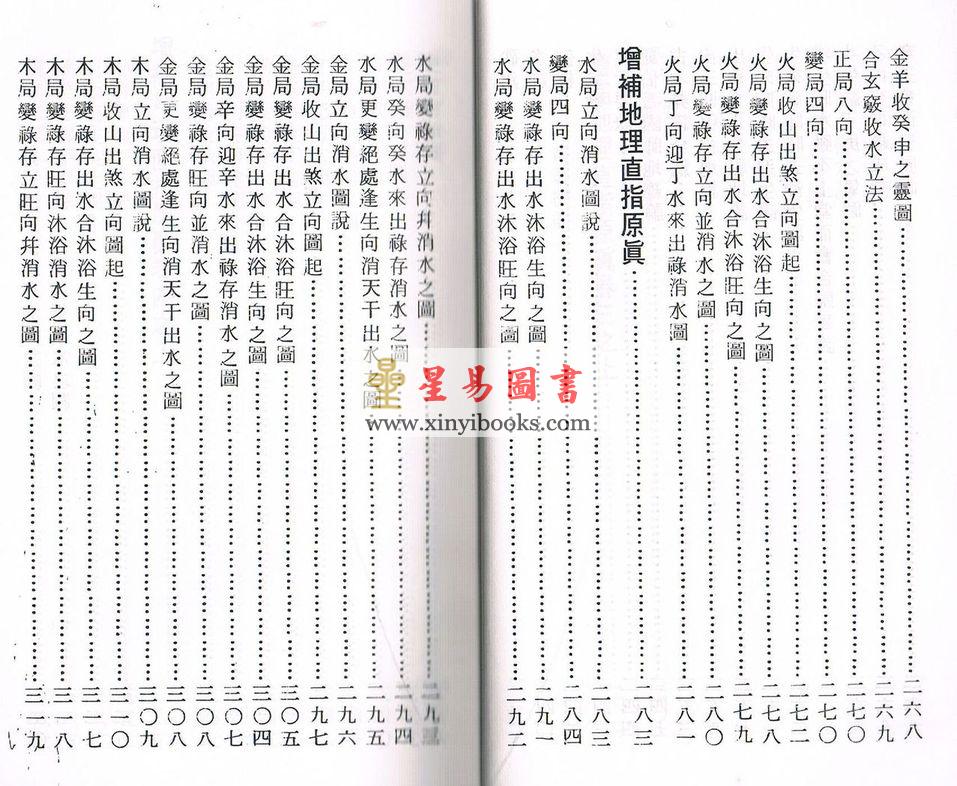 金羊收癸申之靈圖……二六八
合玄竅收水立法……二六九
正局八向……二七〇
變局四向……二七〇
火局收山出煞立向圖起……二七二
火局變祿存出水合沐浴生向之圖……二七八
火局變祿存出水合沐浴旺向之圖……二七九
火局變祿存立向並消水之圖……二八〇
火局丁向迎丁水來出祿消水圖……二八一
增補地理直指原眞……二八三
水局立向消水圖說……二八三
變局四向……二八四
水局變祿存出水沐浴生向之圖……二九一
水局變祿存出水沐浴旺向之圖……二九二
水局變祿存立向幷消水之圖……二九三
水局癸向癸水來出祿存消水之圖……二九四
水局更變絕處逢生向消天干出水之圖……二九五
金局立向消水圖說……二九六
金局收山出煞立向圖起……二九七
金局變祿存出水合沐浴旺向之圖……三〇五
金局變祿存出水合沐浴生向之圖……三〇四
金局辛向迎辛水來出祿存消水之圖……三〇七
金局變祿存旺向並消水之圖……三〇八
金局更變絕處逢生向消天干出水之圖……三〇八
木局立向消水圖說……三〇九
木局收山出煞立向圖起……三一〇
木局變祿存出水合沐浴生向之圖……三一七
木局變祿存旺向沐浴消水之圖……三一八
木局變祿存立旺向幷消水之圖……三一九
星易圖書
www.xinyibooks.com